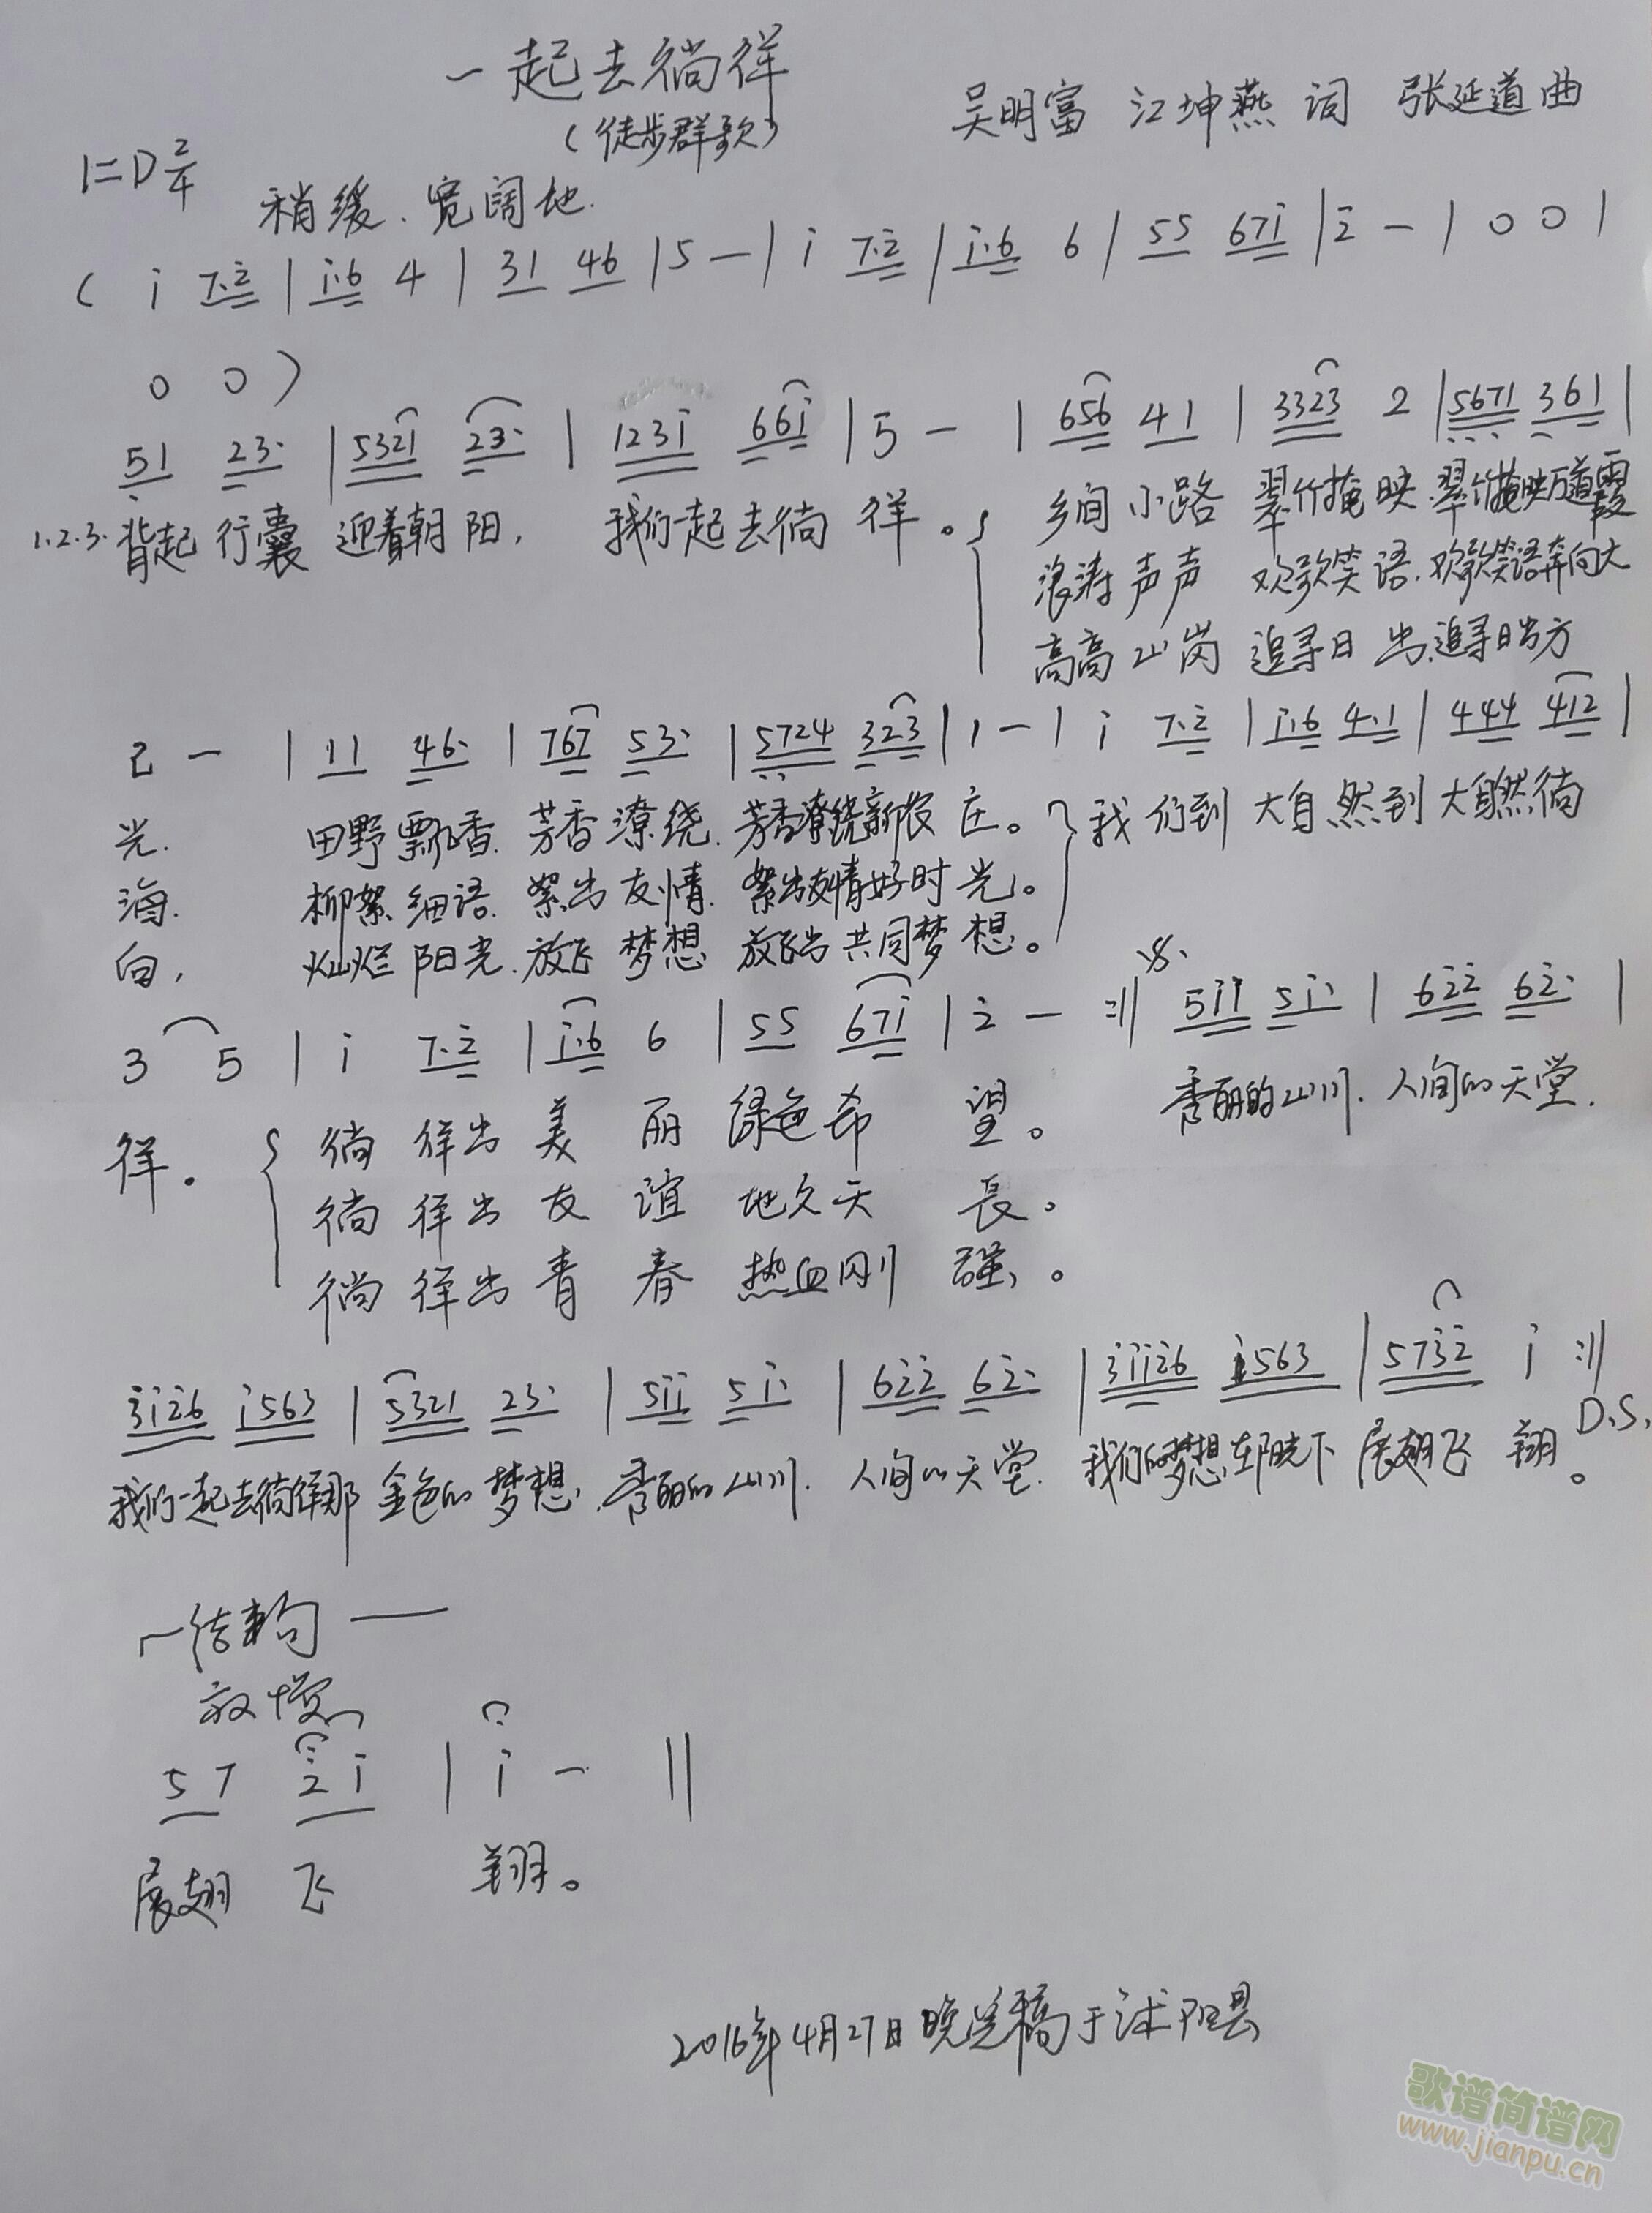 一起去徜徉
(徒步群歌)
吴明富 江坤燕 词 张延道 曲
1=D 2/4
稍缓、宽阔地.
( i 7·2̇ | i·6 4 | 31 46 | 5 — | i 7·2̇ | i·6 6 | 55 67i | 2̇ — | 0 0 |
0 0 )
51 23· | 5321 23· | 123i 66i | 5 — | 656 41 | 3323 2 | 5671 361 |
1.2.3. 背起 行囊 迎着朝阳, 我们一起去徜徉。 { 乡间小路 翠竹掩映.翠竹掩映万道霞
浪涛声声 欢歌笑语.欢歌笑语奔向大
高高山岗 追寻日出.追寻日出方
2 — | 11 46· | 767 53· | 5724 323 | 1 — | i 7·2̇ | i·6 4·1 | 444 412 |
光. 田野飘香. 芳香潦绕. 芳香潦绕新农庄。 } 我们到大自然到大自然徜
海. 柳絮细语. 絮出友情. 絮出友情好时光。
向, 灿烂阳光.放飞梦想 放飞出共同梦想。
3 5 | i 7·2̇ | i·6 6 | 55 67i | 2̇ — :‖ 𝄋 5ii 5i· | 62̇2̇ 62̇· |
秀丽的山川. 人间的天堂.
徉。 { 徜徉出美丽绿色希望。
徜徉出友谊地久天長。
徜徉出青春热血刚强。
3̇i2̇6 i563 | 5321 23· | 5ii 5i· | 62̇2̇ 62̇· | 3̇ii2̇6 i563 | 573̇2̇ i :‖
D.S.
我们一起去徜徉那 金色的梦想.秀丽的山川. 人间的天堂. 我们的梦想在阳光下 展翅飞翔。
结束句 —
放慢
57 2̇i | i — ‖
展翅 飞 翔。
2016年4月27日晚完稿于沭阳县
歌谱简谱网
www.jianpu.cn